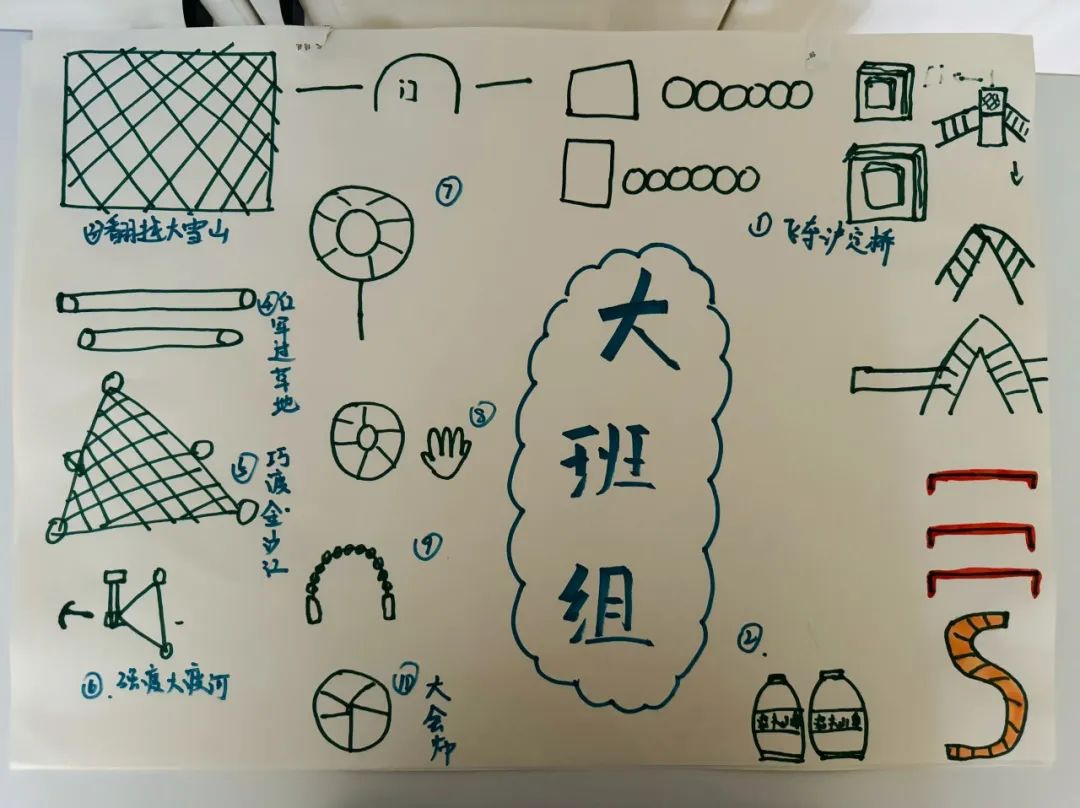 门
⑦
③翻越大雪山
①飞夺泸定桥
④红军过草地
大班组
⑧
⑤巧渡金沙江
⑨
②.
⑥.强渡大渡河
⑩大会师
农夫山泉
农夫山泉